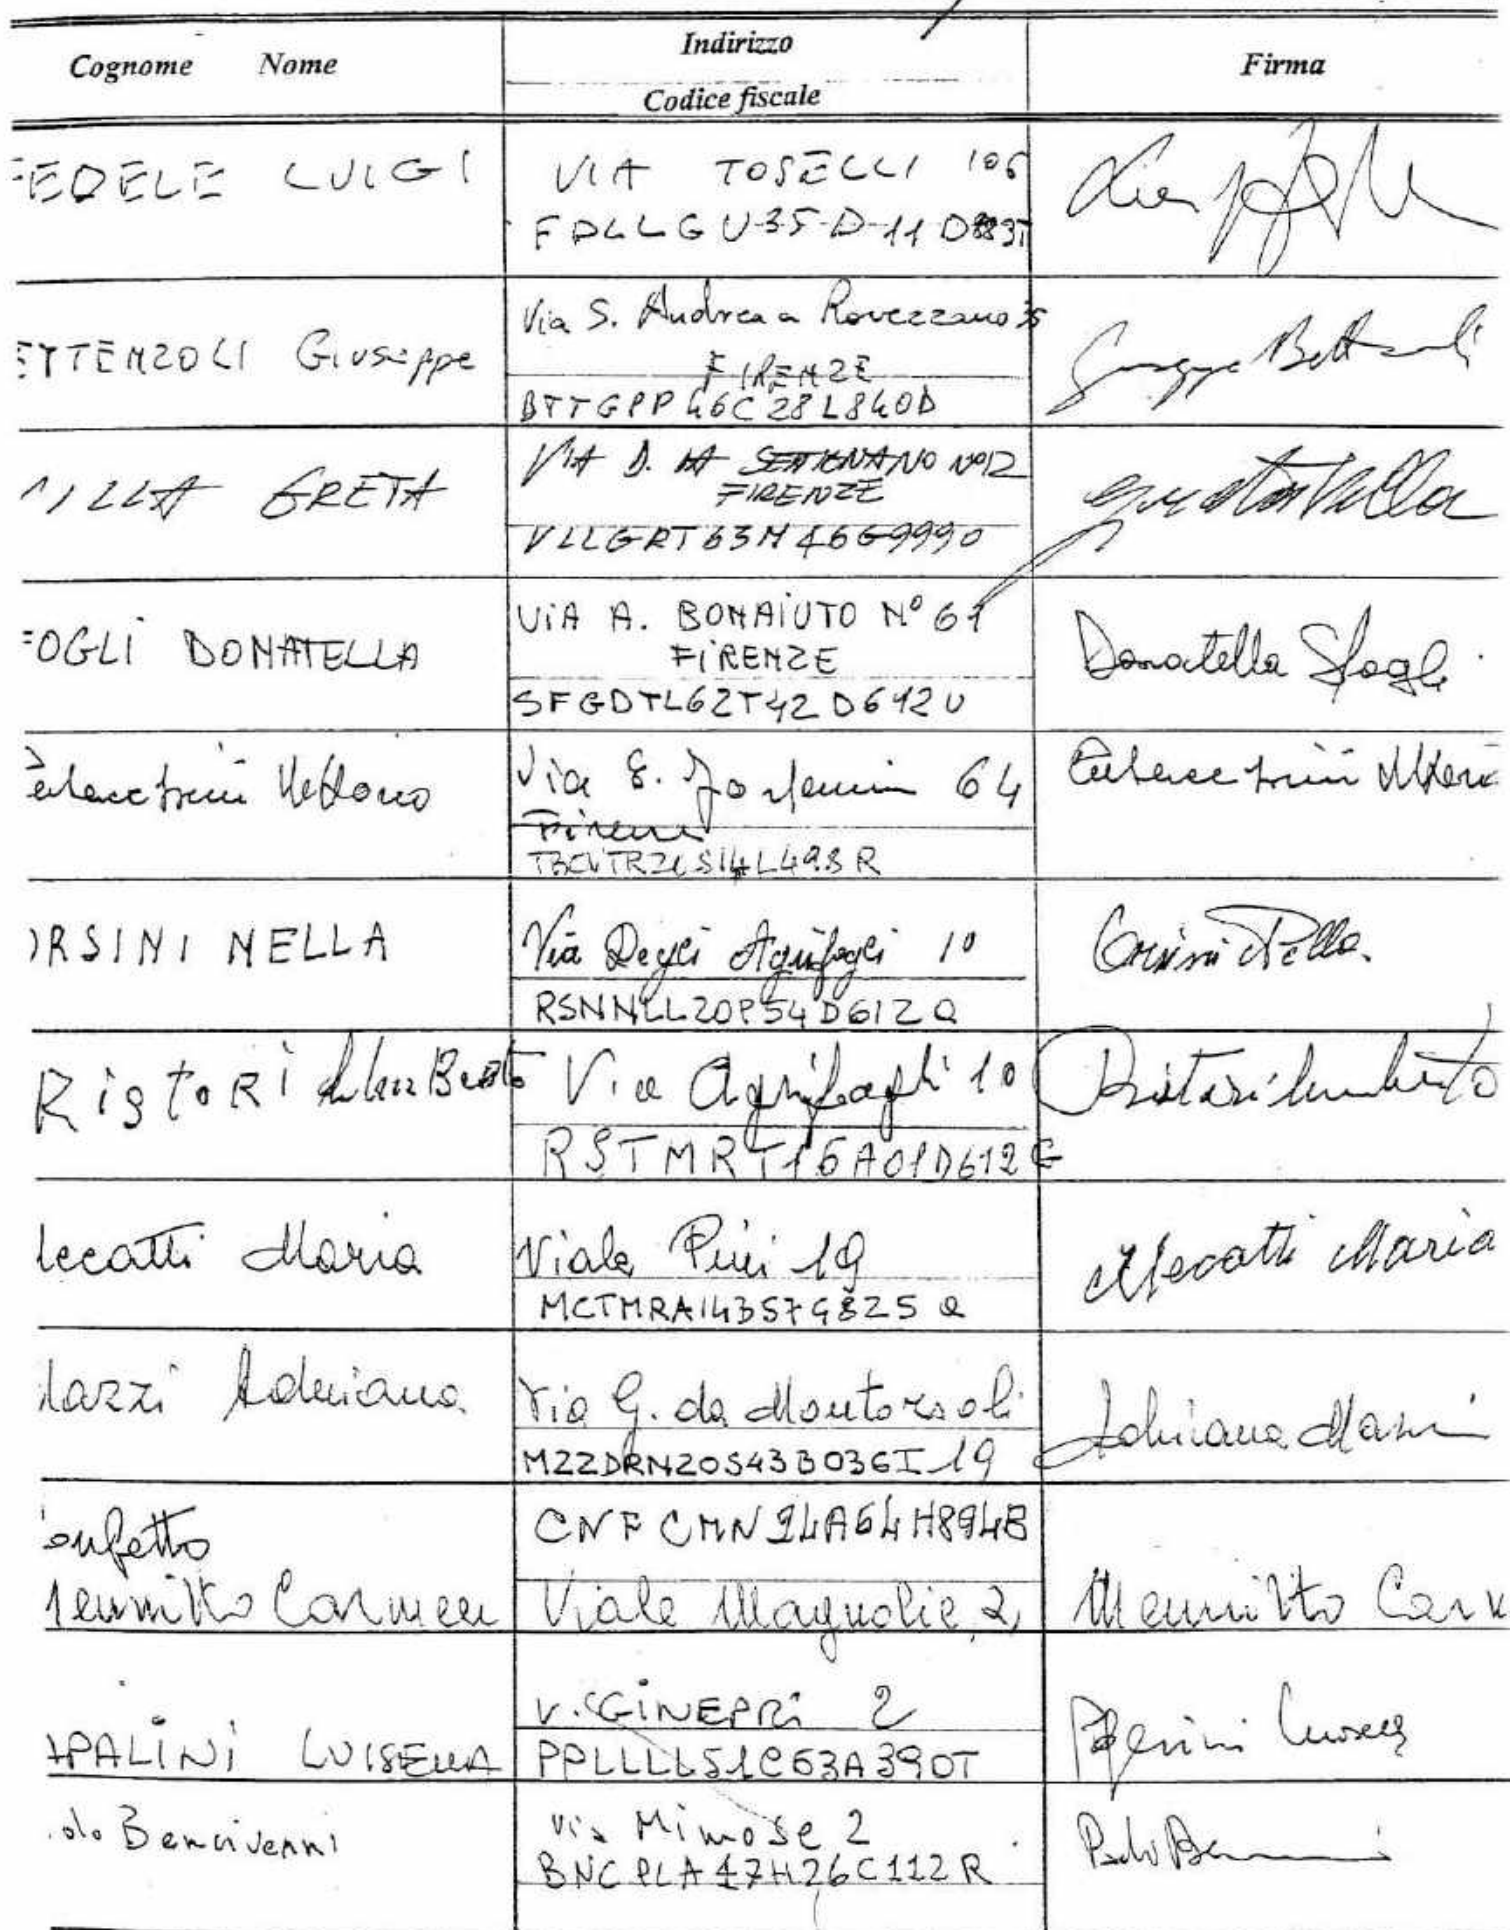 Cognome Nome
Indirizzo
Codice fiscale
Firma
FEDELE LUIGI
VIA TOSELLI 106
FDLLGU-35-D-11 D
ETTENZOLI Giuseppe
Via S. Andrea a Rovezzano 35
FIRENZE
BTTGPP46C28L840D
Giuseppe Bettenzoli
VILLA GRETA
VIA D. DA SETTIGNANO N°12
FIRENZE
VLLGRT63M46G999O
Greta Villa
FOGLI DONATELLA
VIA A. BONAIUTO N° 61
FIRENZE
SFGDTL62T42D612U
Donatella Sfogli
Via 64
Firenze
ORSINI NELLA
Via Degli Agrifogli 10
RSNNLL20P54D612Q
Orsini Nella
RistoRi
Via Agrifogli 10
RSTMRT16A01D612G
Ristori Umberto
lecatti Maria
Viale Pini 19
MCTMRA14357G825Q
Mecatti Maria
lazzi Adriana
Via G. da Montorsoli
MZZDRN20S43B036I 19
Adriana Mazzi
onfetto
Carmen
CNFCMN24A64H894B
Viale Magnolie 2
APALINI LUISELLA
V. GINEPRI 2
PPLLLL51C63A390T
olo Bencivenni
via Mimose 2
BNCPLA47H26C112R